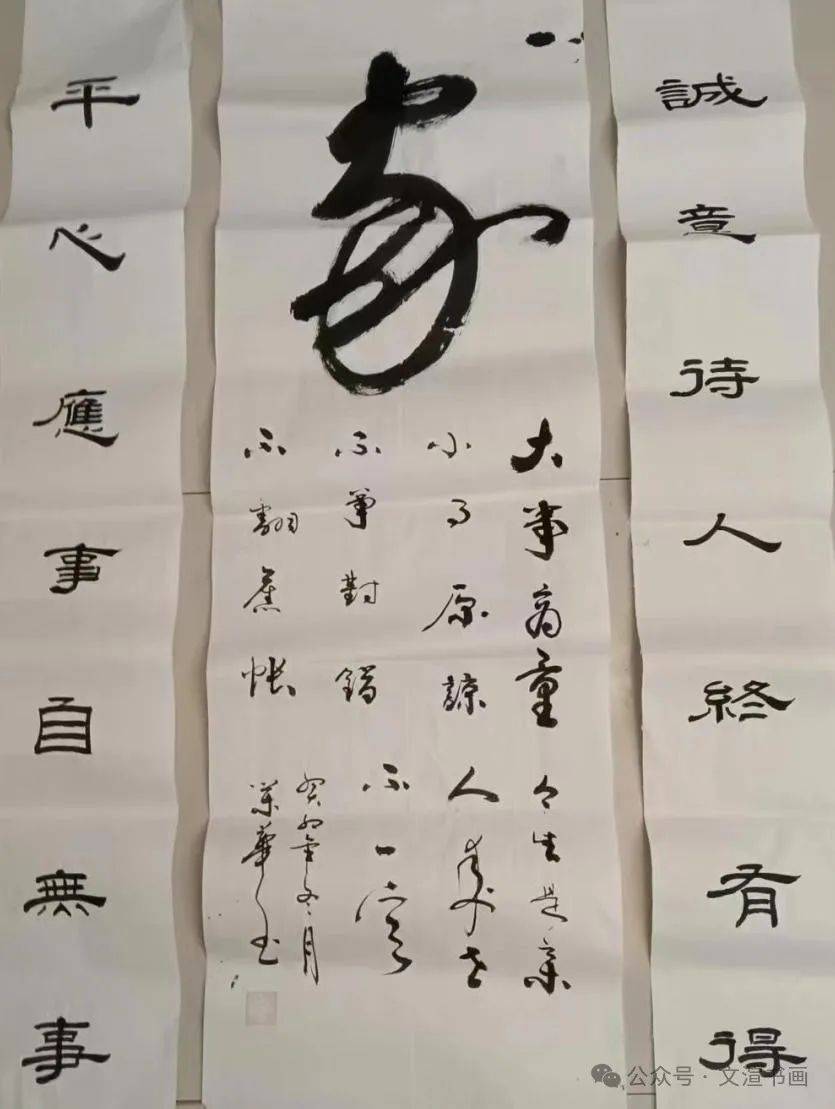 誠意待人終有得
家
大事商量
小事原諒
不爭對錯
不翻舊帐
今生是亲
人来世
不一定
癸卯年冬月
平心應事自無事
公众号·文渲书画